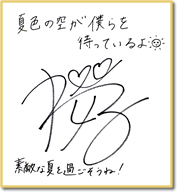 夏色の空が僕らを
待っているよ
素敵な夏を過ごそうね！